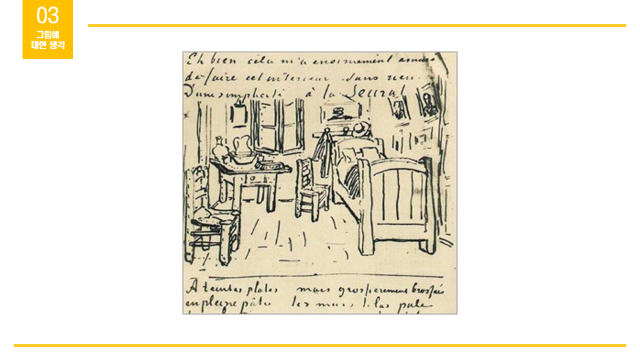 03
그림에
대한 생각
Eh bien cela m'a enormement amusé
de faire cet interieur sans rien
D'une simplicité à la Seurat
A teintes plates mais grossierement brossées
en pleine pâte les murs lilas pale